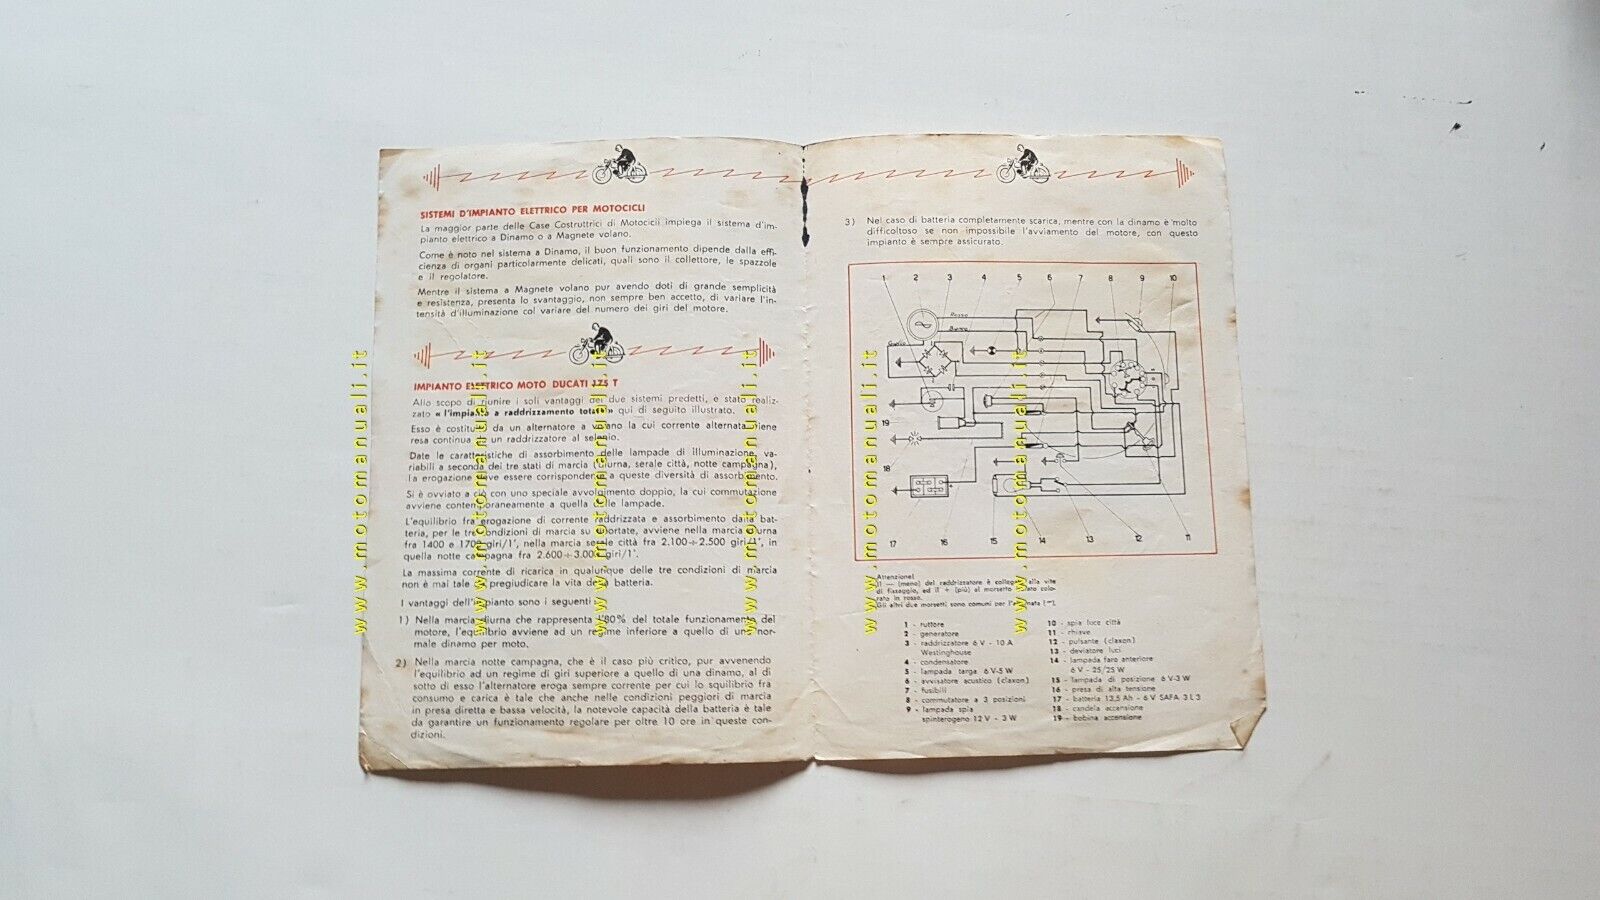 SISTEMI D'IMPIANTO ELETTRICO PER MOTOCICLI
La maggior parte delle Case Costruttrici di Motocicli impiega il sistema d'im-
pianto elettrico a Dinamo o a Magnete volano.
Come è noto nel sistema a Dinamo, il buon funzionamento dipende dalla effi-
cienza di organi particolarmente delicati, quali sono il collettore, le spazzole
e il regolatore.
Mentre il sistema a Magnete volano pur avendo doti di grande semplicità
e resistenza, presenta lo svantaggio, non sempre ben accetto, di variare l'in-
tensità d'illuminazione col variare del numero dei giri del motore.
IMPIANTO ELETTRICO MOTO DUCATI 175 T
Allo scopo di riunire i soli vantaggi dei due sistemi predetti, è stato realiz-
zato « l'impianto a raddrizzamento totale» qui di seguito illustrato.
Esso è costituito da un alternatore a volano la cui corrente alternata viene
resa continua da un raddrizzatore al selenio.
Date le caratteristiche di assorbimento delle lampade di illuminazione, va-
riabili a seconda dei tre stati di marcia (diurna, serale città, notte campagna),
la erogazione deve essere corrispondente a queste diversità di assorbimento.
Si è ovviato a ciò con uno speciale avvolgimento doppio, la cui commutazione
avviene contemporaneamente a quella delle lampade.
L'equilibrio fra erogazione di corrente raddrizzata e assorbimento dalla bat-
teria, per le tre condizioni di marcia su riportate, avviene nella marcia diurna
fra 1400 e 1700 giri/1', nella marcia serale città fra 2.100÷2.500 giri/1', in
quella notte campagna fra 2.600÷3.000 giri/1'.
La massima corrente di ricarica in qualunque delle tre condizioni di marcia
non è mai tale da pregiudicare la vita della batteria.
I vantaggi dell'impianto sono i seguenti:
1) Nella marcia diurna che rappresenta l'80% del totale funzionamento del
motore, l'equilibrio avviene ad un regime inferiore a quello di una nor-
male dinamo per moto.
2) Nella marcia notte campagna, che è il caso più critico, pur avvenendo
l'equilibrio ad un regime di giri superiore a quello di una dinamo, al di
sotto di esso l'alternatore eroga sempre corrente per cui lo squilibrio fra
consumo e carica è tale che anche nelle condizioni peggiori di marcia
in presa diretta e bassa velocità, la notevole capacità della batteria è tale
da garantire un funzionamento regolare per oltre 10 ore in queste con-
dizioni.
3) Nel caso di batteria completamente scarica, mentre con la dinamo è molto
difficoltoso se non impossibile l'avviamento del motore, con questo
impianto è sempre assicurato.
1 2 3 4 5 6 7 8 9 10
Rosso
Bianco
Giallo
19
18
17 16 15 14 13 12 11
Attenzione!
Il — (meno) del raddrizzatore è collegato alla vite
di fissaggio, ed il + (più) al morsetto isolato colo-
rato in rosso.
Gli altri due morsetti sono comuni per l'alternata (~).
1 - ruttore
2 - generatore
3 - raddrizzatore 6 V - 10 A
Westinghouse
4 - condensatore
5 - lampada targa 6 V-5 W
6 - avvisatore acustico (claxon)
7 - fusibili
8 - commutatore a 3 posizioni
9 - lampada spia
spinterogeno 12 V - 3 W
10 - spia luce città
11 - chiave
12 - pulsante (claxon)
13 - deviatore luci
14 - lampada faro anteriore
6 V - 25/25 W
15 - lampada di posizione 6 V-3 W
16 - presa di alta tensione
17 - batteria 13,5 Ah - 6 V SAFA 3 L 3
18 - candela accensione
19 - bobina accensione
www.motomanuali.it
www.motomanuali.it
www.motomanuali.it
www.motomanuali.it
www.motomanuali.it
www.motomanuali.it